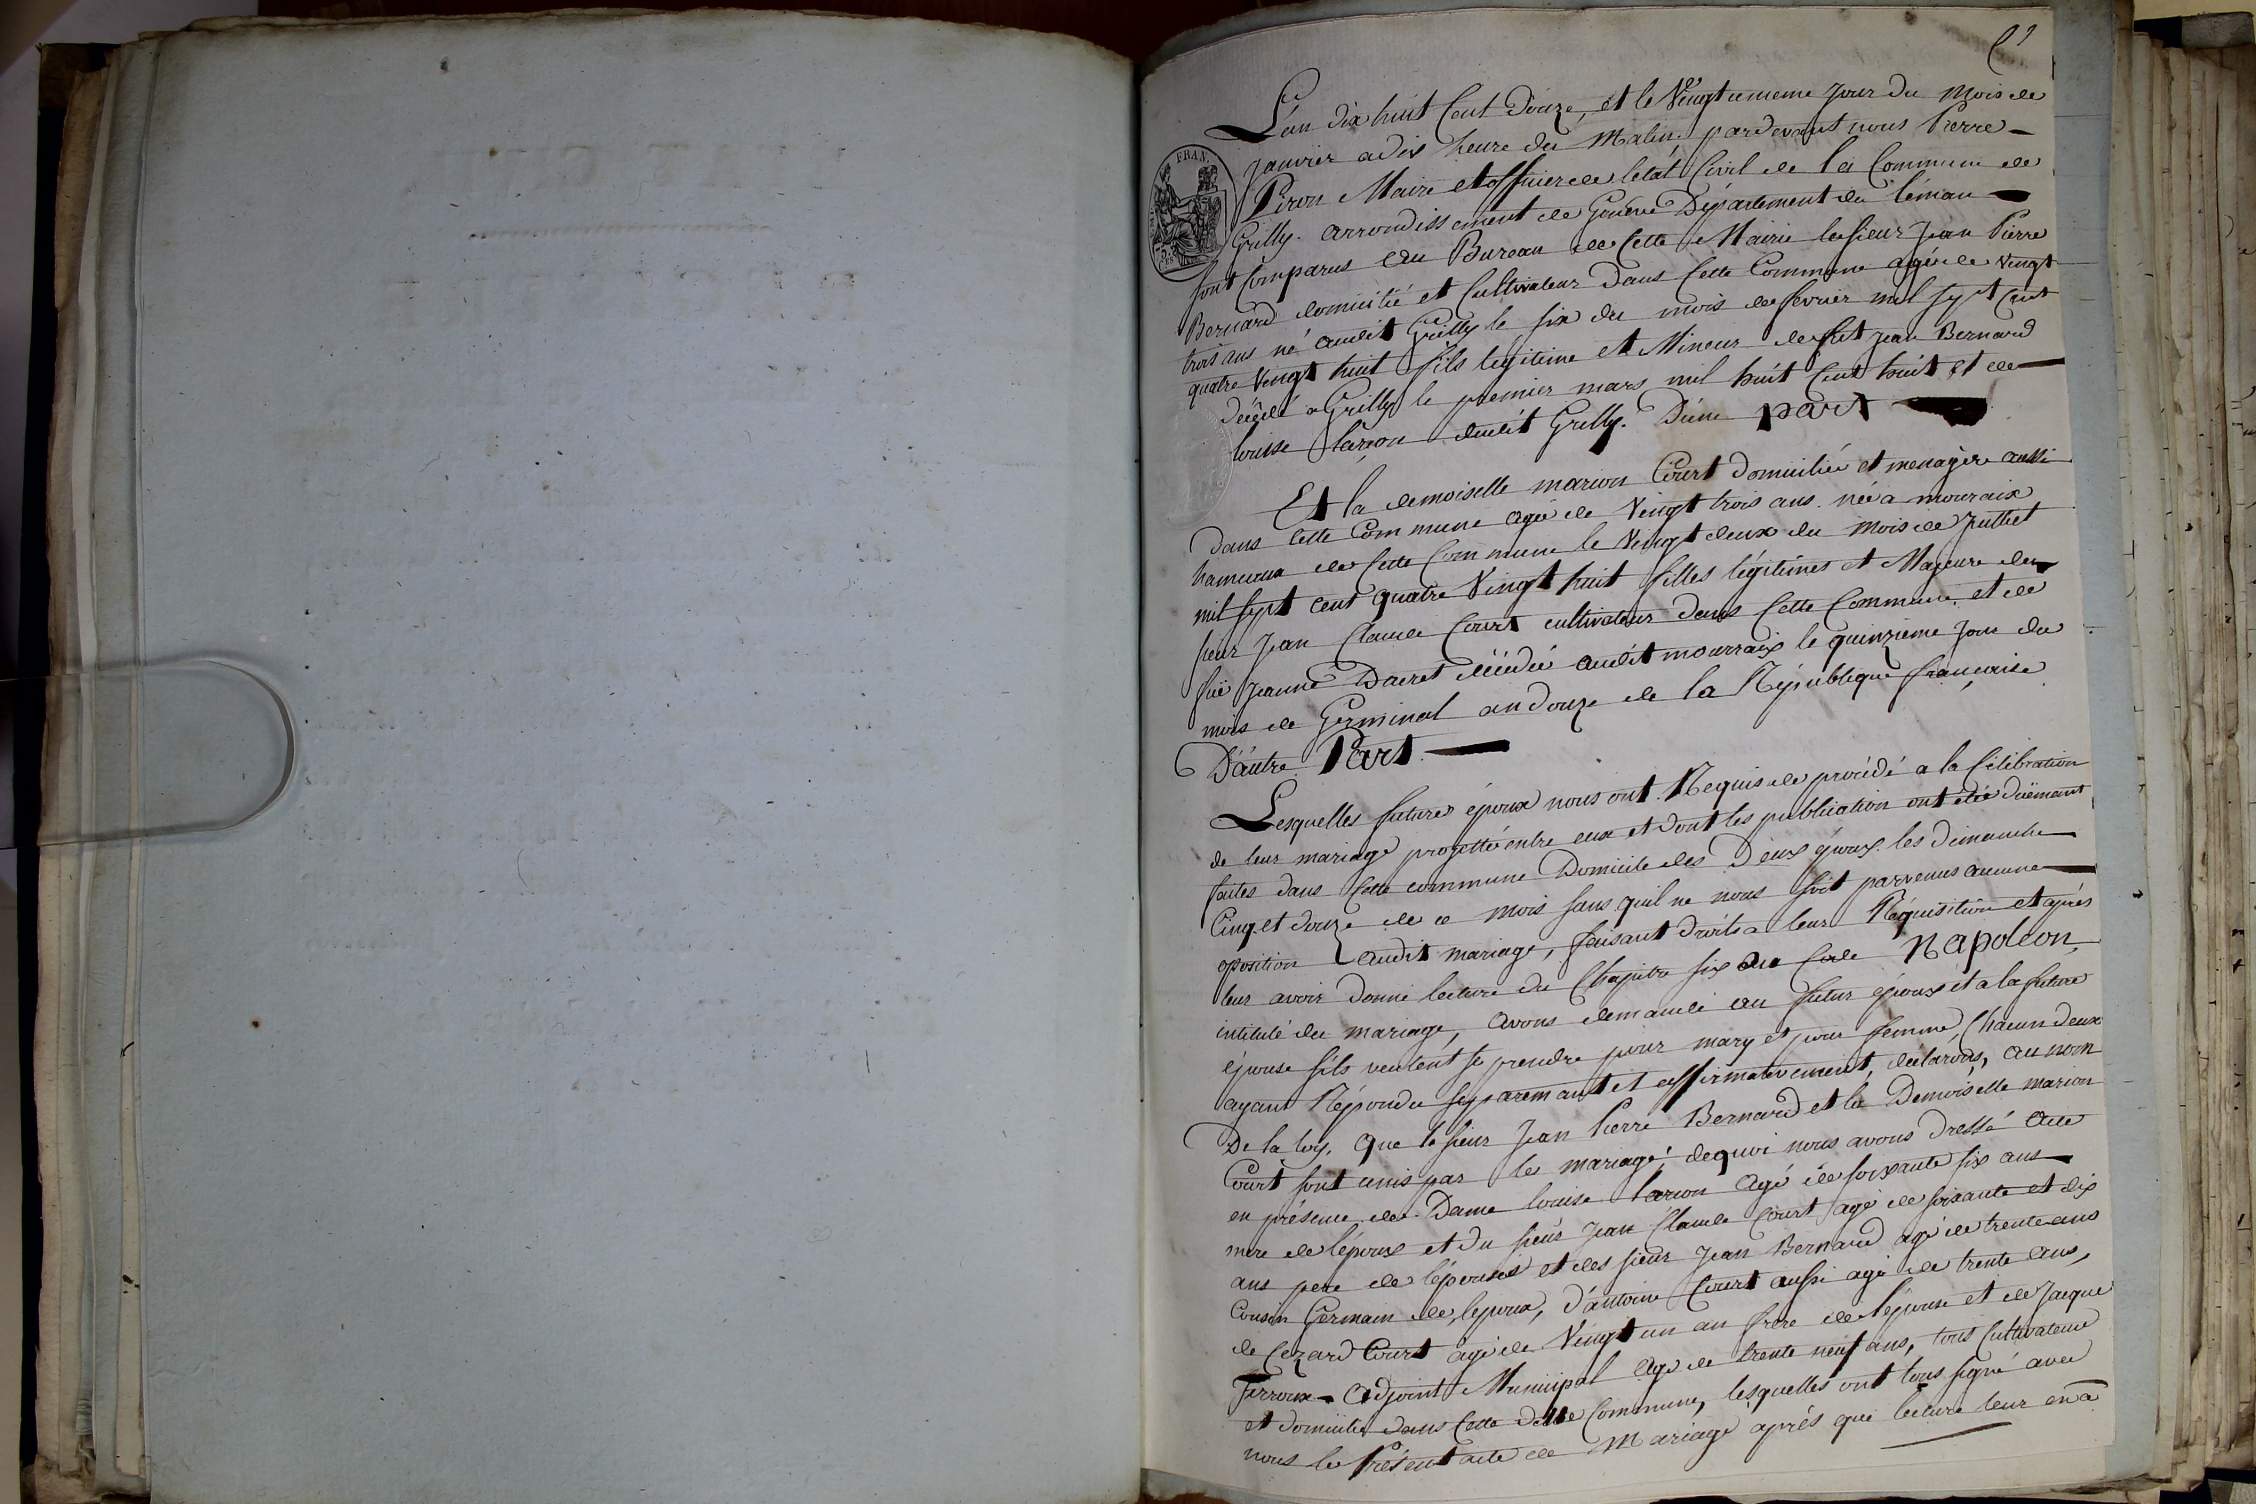 L'an dix huit Cent Douze, et le Vingtunieme Jour du Mois de
Janvier a dix heure du Matin, pardevant nous Pierre
FRAN.
Piron Maire et officier de l'état Civil de la Commune de
Grilly. arrondissement de Genève Département du Léman
sont Comparus au Bureau de Cette Mairie le sieur Jean Pierre
Bernard domicilié et Cultivateur Dans Cette Commune agée de Vingt
trois ans né audit Grilly le six du mois de fevrier mil sept Cent
quatre Vingt huit fils legitime et Mineur de fut Jean Bernard
Décédé a Grilly le premier mars mil huit Cent huit et de
louise dudit Grilly. D'une part
Et la demoiselle marion Court Domiciliée et menagère aussi
Dans Cette Commune agée de Vingt trois ans. née a mouraix
hameaux de Cette Commune le Vingt deux du Mois de Juillet
mil sept cent quatre Vingt huit filles légitimes et Majeure du
sieur Jean Claude Court cultivateur dans Cette Commune et de
Jeanne Dacret décédée audit mourraix le quinzieme Jour du
mois de Germinal an Douze de la République française
D'autre Part.
Lesquelles future époux nous ont Requis de procédé a la Célébration
de leur mariage projetté entre eux et dont les publication ont étée düemant
faites dans Cette commune Domicile des Deux époux les Dimanche
Cinq et douze de ce mois sans quil ne nous soit parvenus aucune
oposition audit mariage, faisant droite a leur Réquisition et après
leur avoir donné lecture du Chapitre six du Code Napoléon,
intitulé du mariage, avons demandé au futur époux et a la future
épouse s'ils veulent se prendre pour mary et pour femme, Chacun deux
ayant Répondu separemant et affirmativement, declarons, au nom
De la loy, que le sieur Jean Pierre Bernard et la Demoiselle marion
Court sont unis par le mariage, dequoi nous avons Dressé acte
en présence de Dame louise agé de soixante six ans
mere de l'époux et du sieur Jean Claude Court agé de soixante et dix
ans pere de l'épouse et des sieur Jean Bernard agé de trente ans
Cousin Germain de l'epoux, d'antoine Court aussi agé de trente ans,
de Cezard Court agé de Vingt un an frere de l'épouse et de Jacque
adjoint Municipal agé de trente neuf ans, tous Cultivateur
et domicilié dans Cette dite Commune, lesquelles ont tous signé avec
nous le Présent acte de Mariage après que lecture leur en a